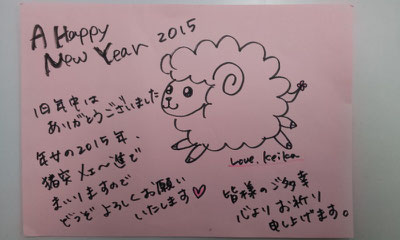 A Happy
New Year 2015
旧年中は
ありがとうございました
年女の2015年、
猪突メェ〜進で
まいりますので
どうぞよろしくお願い
いたします♥
Love. Keika
皆様のご多幸
心よりお祈り
申し上げます。